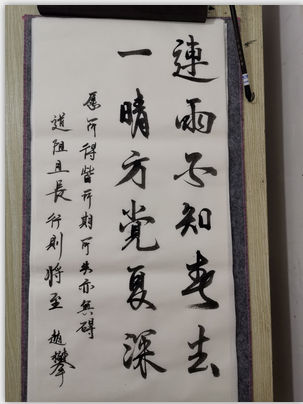 連雨不知春去
一晴方觉夏深
愿所得皆所期所失亦無碍
道阻且長行則將至